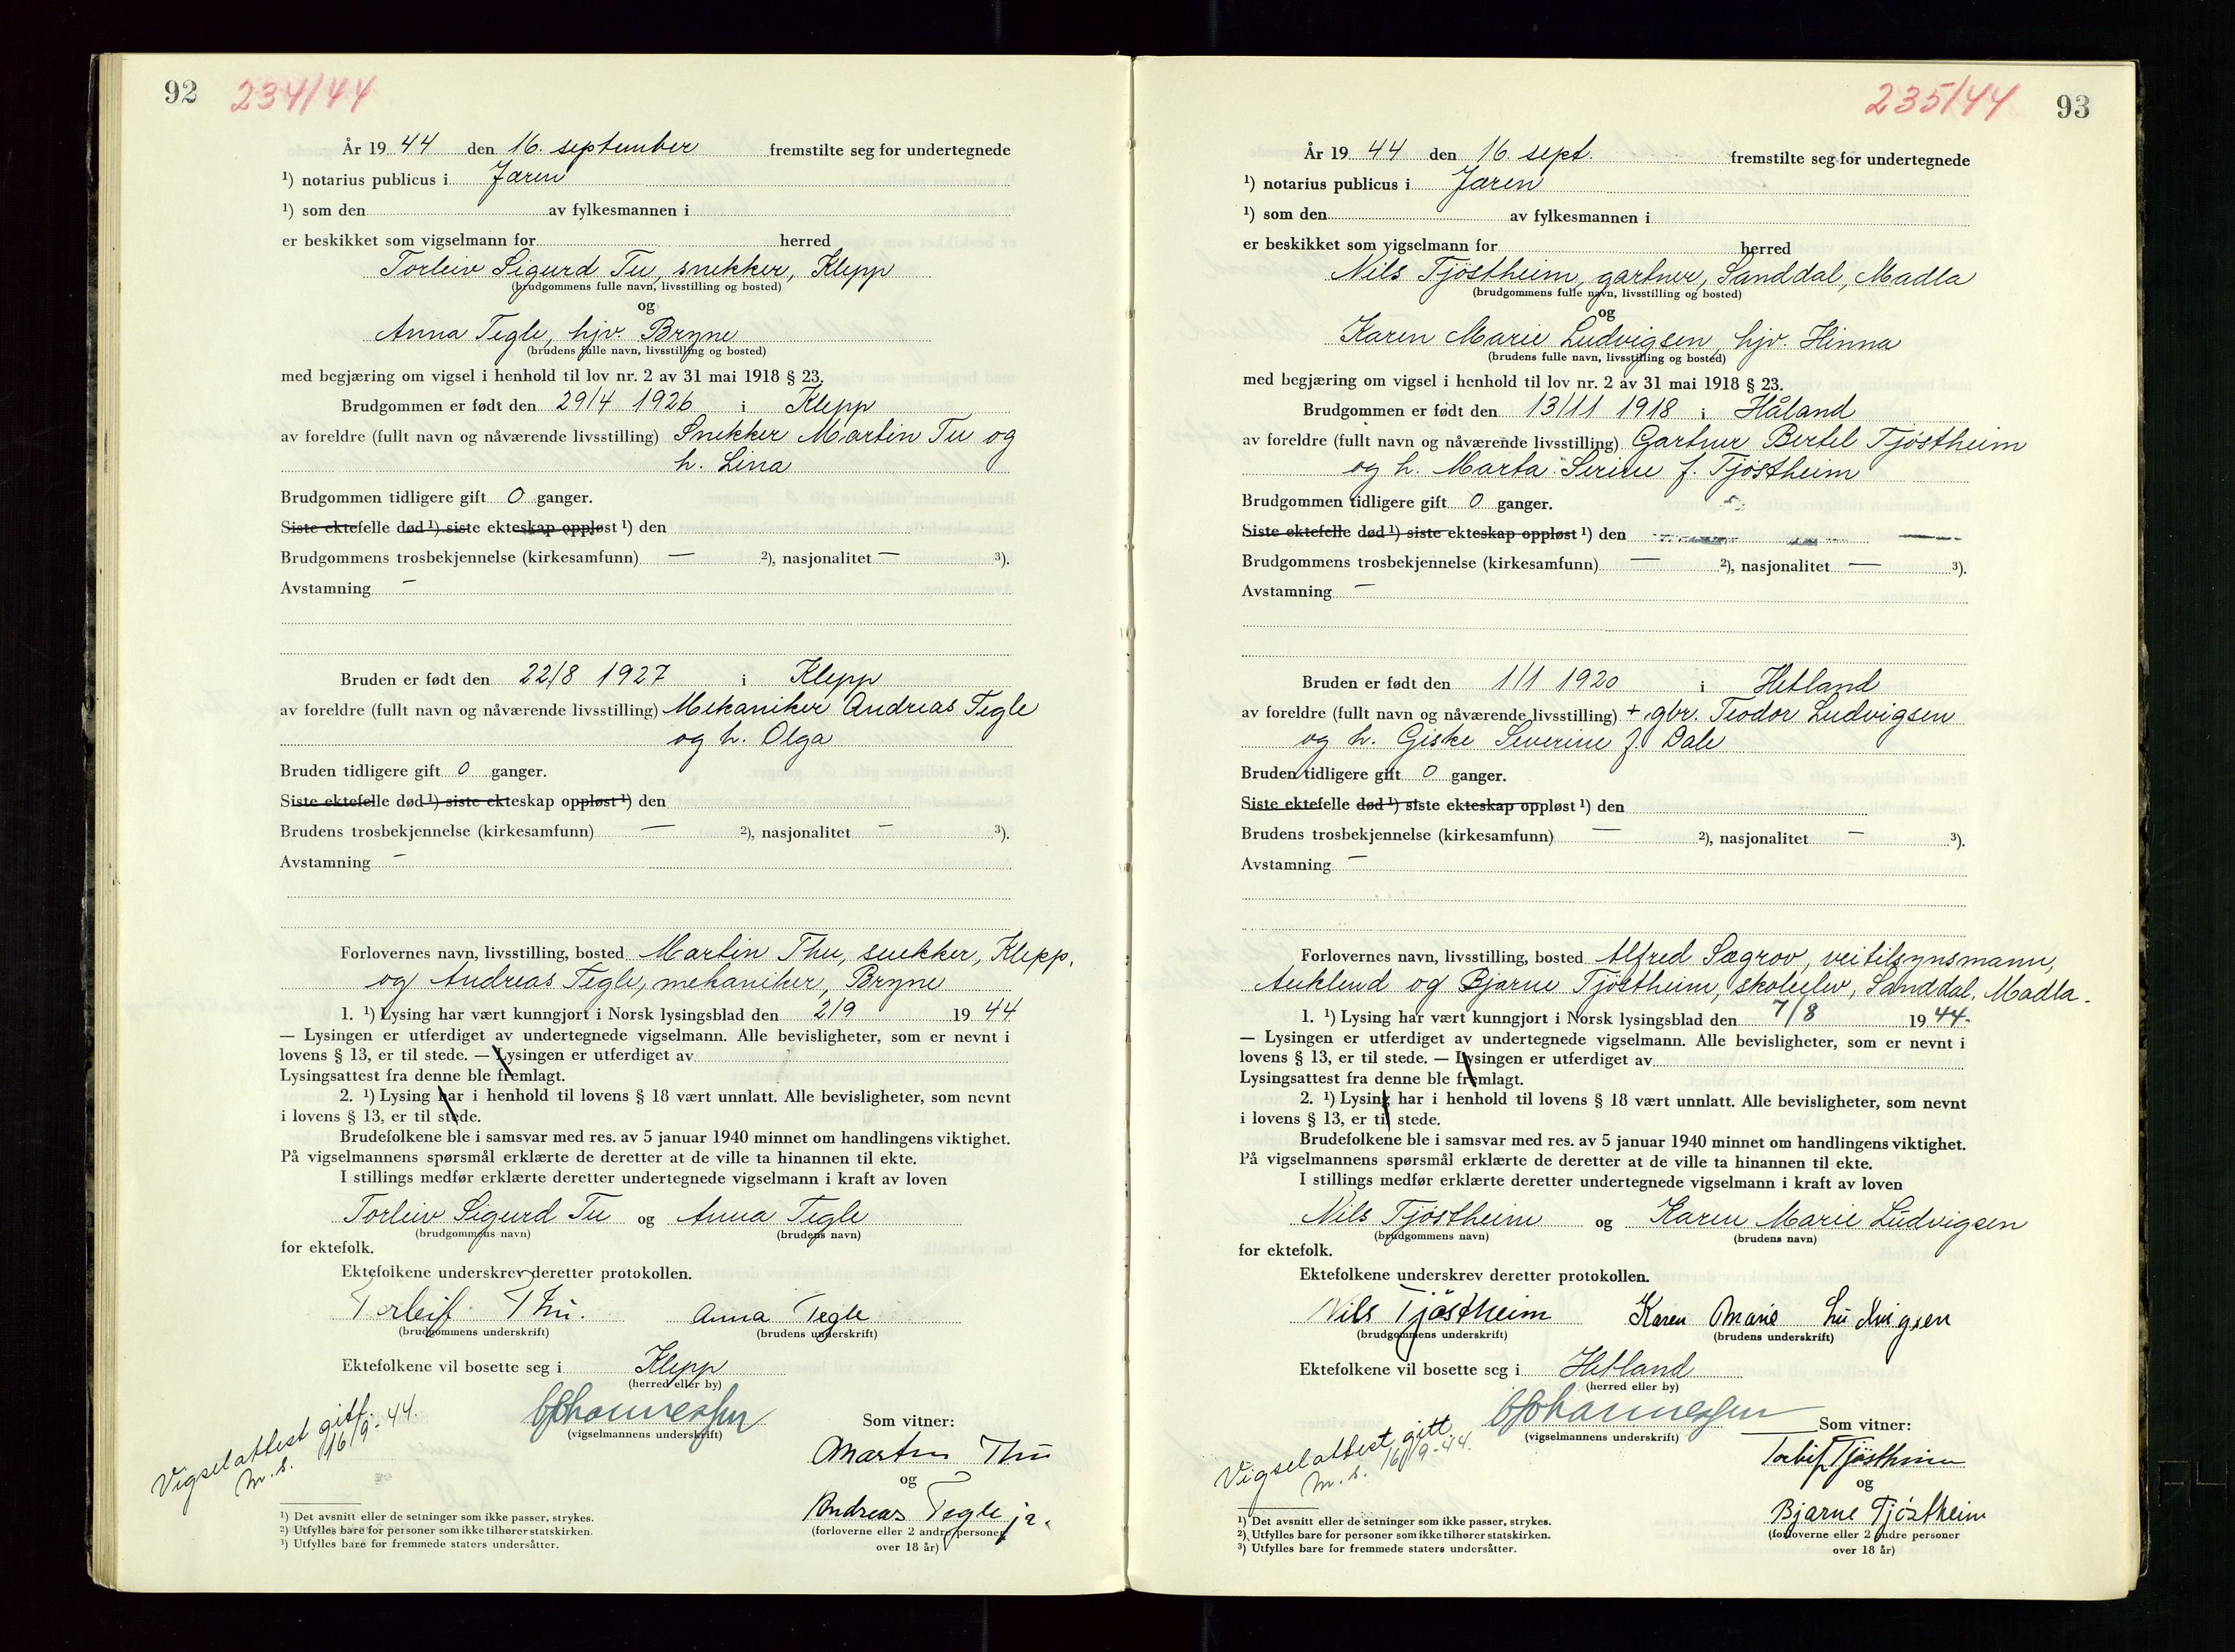 92 234/44
År 19 44 den 16. september fremstilte seg for undertegnede
¹) notarius publicus i Jæren
¹) som den av fylkesmannen i
er beskikket som vigselmann for herred
Torleiv Sigurd Tu, snekker, Klepp
(brudgommens fulle navn, livsstilling og bosted)
og
Anna Tegle, hjv. Bryne
(brudens fulle navn, livsstilling og bosted)
med begjæring om vigsel i henhold til lov nr. 2 av 31 mai 1918 § 23.
Brudgommen er født den 29/4 1926 i Klepp
av foreldre (fullt navn og nåværende livsstilling) Snekker Martin Tu og
h. Lina
Brudgommen tidligere gift 0 ganger.
Siste ektefelle død ¹) siste ekteskap oppløst ¹) den
Brudgommens trosbekjennelse (kirkesamfunn) — ²), nasjonalitet — ³).
Avstamning —
Bruden er født den 22/8 1927 i Klepp
av foreldre (fullt navn og nåværende livsstilling) Mekaniker Andreas Tegle
og h. Olga
Bruden tidligere gift 0 ganger.
Siste ektefelle død ¹) siste ekteskap oppløst ¹) den
Brudens trosbekjennelse (kirkesamfunn) — ²), nasjonalitet — ³).
Avstamning —
Forlovernes navn, livsstilling, bosted Martin Thu, snekker, Klepp.
og Andreas Tegle, mekaniker, Bryne
1. ¹) Lysing har vært kunngjort i Norsk lysingsblad den 2/9 19 44
— Lysingen er utferdiget av undertegnede vigselmann. Alle bevisligheter, som er nevnt i
lovens § 13, er til stede. — Lysingen er utferdiget av
Lysingsattest fra denne ble fremlagt.
2. ¹) Lysing har i henhold til lovens § 18 vært unnlatt. Alle bevisligheter, som nevnt
i lovens § 13, er til stede.
Brudefolkene ble i samsvar med res. av 5 januar 1940 minnet om handlingens viktighet.
På vigselmannens spørsmål erklærte de deretter at de ville ta hinannen til ekte.
I stillings medfør erklærte deretter undertegnede vigselmann i kraft av loven
Torleiv Sigurd Tu og Anna Tegle
(brudgommens navn) (brudens navn)
for ektefolk.
Ektefolkene underskrev deretter protokollen.
Torleif Thu. Anna Tegle
(brudgommens underskrift) (brudens underskrift)
Ektefolkene vil bosette seg i Klepp
(herred eller by)
Vigselattest gitt.
m. s. 16/9-44.
Johannessen
(vigselmannens underskrift)
Som vitner:
Martin Thu
og
Andreas Tegle jr.
(forloverne eller 2 andre personer
over 18 år)
¹) Det avsnitt eller de setninger som ikke passer, strykes.
²) Utfylles bare for personer som ikke tilhører statskirken.
³) Utfylles bare for fremmede staters undersåtter.
235/44 93
År 19 44 den 16. sept. fremstilte seg for undertegnede
¹) notarius publicus i Jæren
¹) som den av fylkesmannen i
er beskikket som vigselmann for herred
Nils Tjöstheim, gartner, Sanddal, Madla
(brudgommens fulle navn, livsstilling og bosted)
og
Karen Marie Ludvigsen, hjv. Hinna
(brudens fulle navn, livsstilling og bosted)
med begjæring om vigsel i henhold til lov nr. 2 av 31 mai 1918 § 23.
Brudgommen er født den 13/11 1918 i Håland
av foreldre (fullt navn og nåværende livsstilling) Gartner Bertel Tjöstheim
og h. Marta Serine f. Tjöstheim
Brudgommen tidligere gift 0 ganger.
Siste ektefelle død ¹) siste ekteskap oppløst ¹) den
Brudgommens trosbekjennelse (kirkesamfunn) — ²), nasjonalitet — ³).
Avstamning —
Bruden er født den 1/1 1920 i Hetland
av foreldre (fullt navn og nåværende livsstilling) + gbr. Teodor Ludvigsen
og h. Giske Severine f. Dale
Bruden tidligere gift 0 ganger.
Siste ektefelle død ¹) siste ekteskap oppløst ¹) den
Brudens trosbekjennelse (kirkesamfunn) — ²), nasjonalitet — ³).
Avstamning —
Forlovernes navn, livsstilling, bosted Alfred Sægrov, veitilsynsmann,
Auklend og Bjarne Tjöstheim, skoleelev, Sanddal, Madla.
1. ¹) Lysing har vært kunngjort i Norsk lysingsblad den 7/8 19 44.
— Lysingen er utferdiget av undertegnede vigselmann. Alle bevisligheter, som er nevnt i
lovens § 13, er til stede. — Lysingen er utferdiget av
Lysingsattest fra denne ble fremlagt.
2. ¹) Lysing har i henhold til lovens § 18 vært unnlatt. Alle bevisligheter, som nevnt
i lovens § 13, er til stede.
Brudefolkene ble i samsvar med res. av 5 januar 1940 minnet om handlingens viktighet.
På vigselmannens spørsmål erklærte de deretter at de ville ta hinannen til ekte.
I stillings medfør erklærte deretter undertegnede vigselmann i kraft av loven
Nils Tjöstheim og Karen Marie Ludvigsen
(brudgommens navn) (brudens navn)
for ektefolk.
Ektefolkene underskrev deretter protokollen.
Nils Tjöstheim Karen Marie Ludvigsen
(brudgommens underskrift) (brudens underskrift)
Ektefolkene vil bosette seg i Hetland
(herred eller by)
Vigselattest gitt
m. s. 16/9-44.
Johannessen
(vigselmannens underskrift)
Som vitner:
Tjöstheim
og
Bjarne Tjöstheim
(forloverne eller 2 andre personer
over 18 år)
¹) Det avsnitt eller de setninger som ikke passer, strykes.
²) Utfylles bare for personer som ikke tilhører statskirken.
³) Utfylles bare for fremmede staters undersåtter.